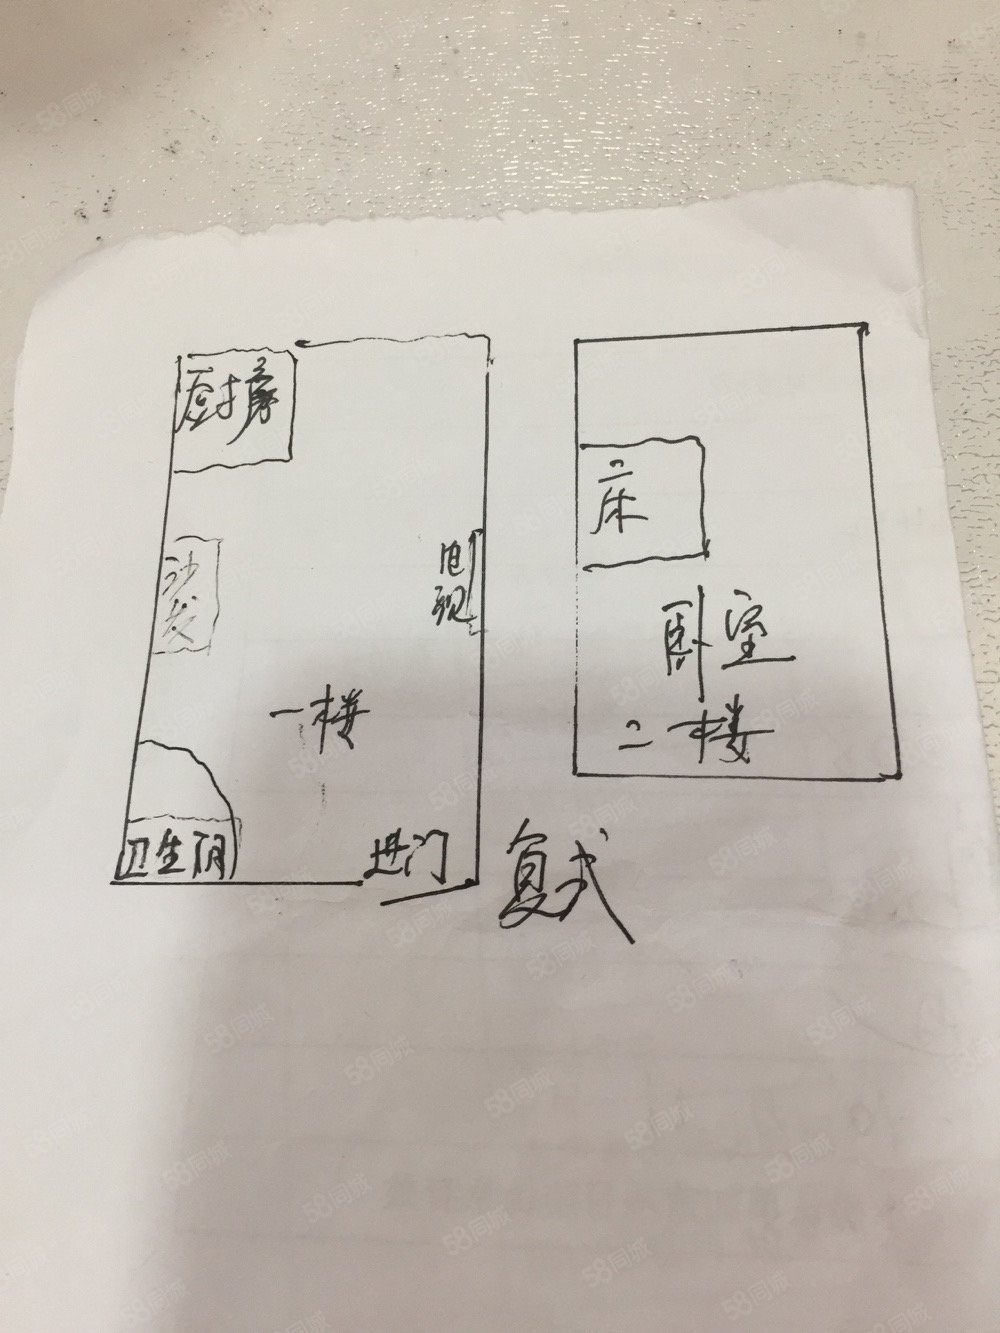 厨房
沙发
电视
一楼
卫生间
进门
床
卧室
二楼
复式
58同城